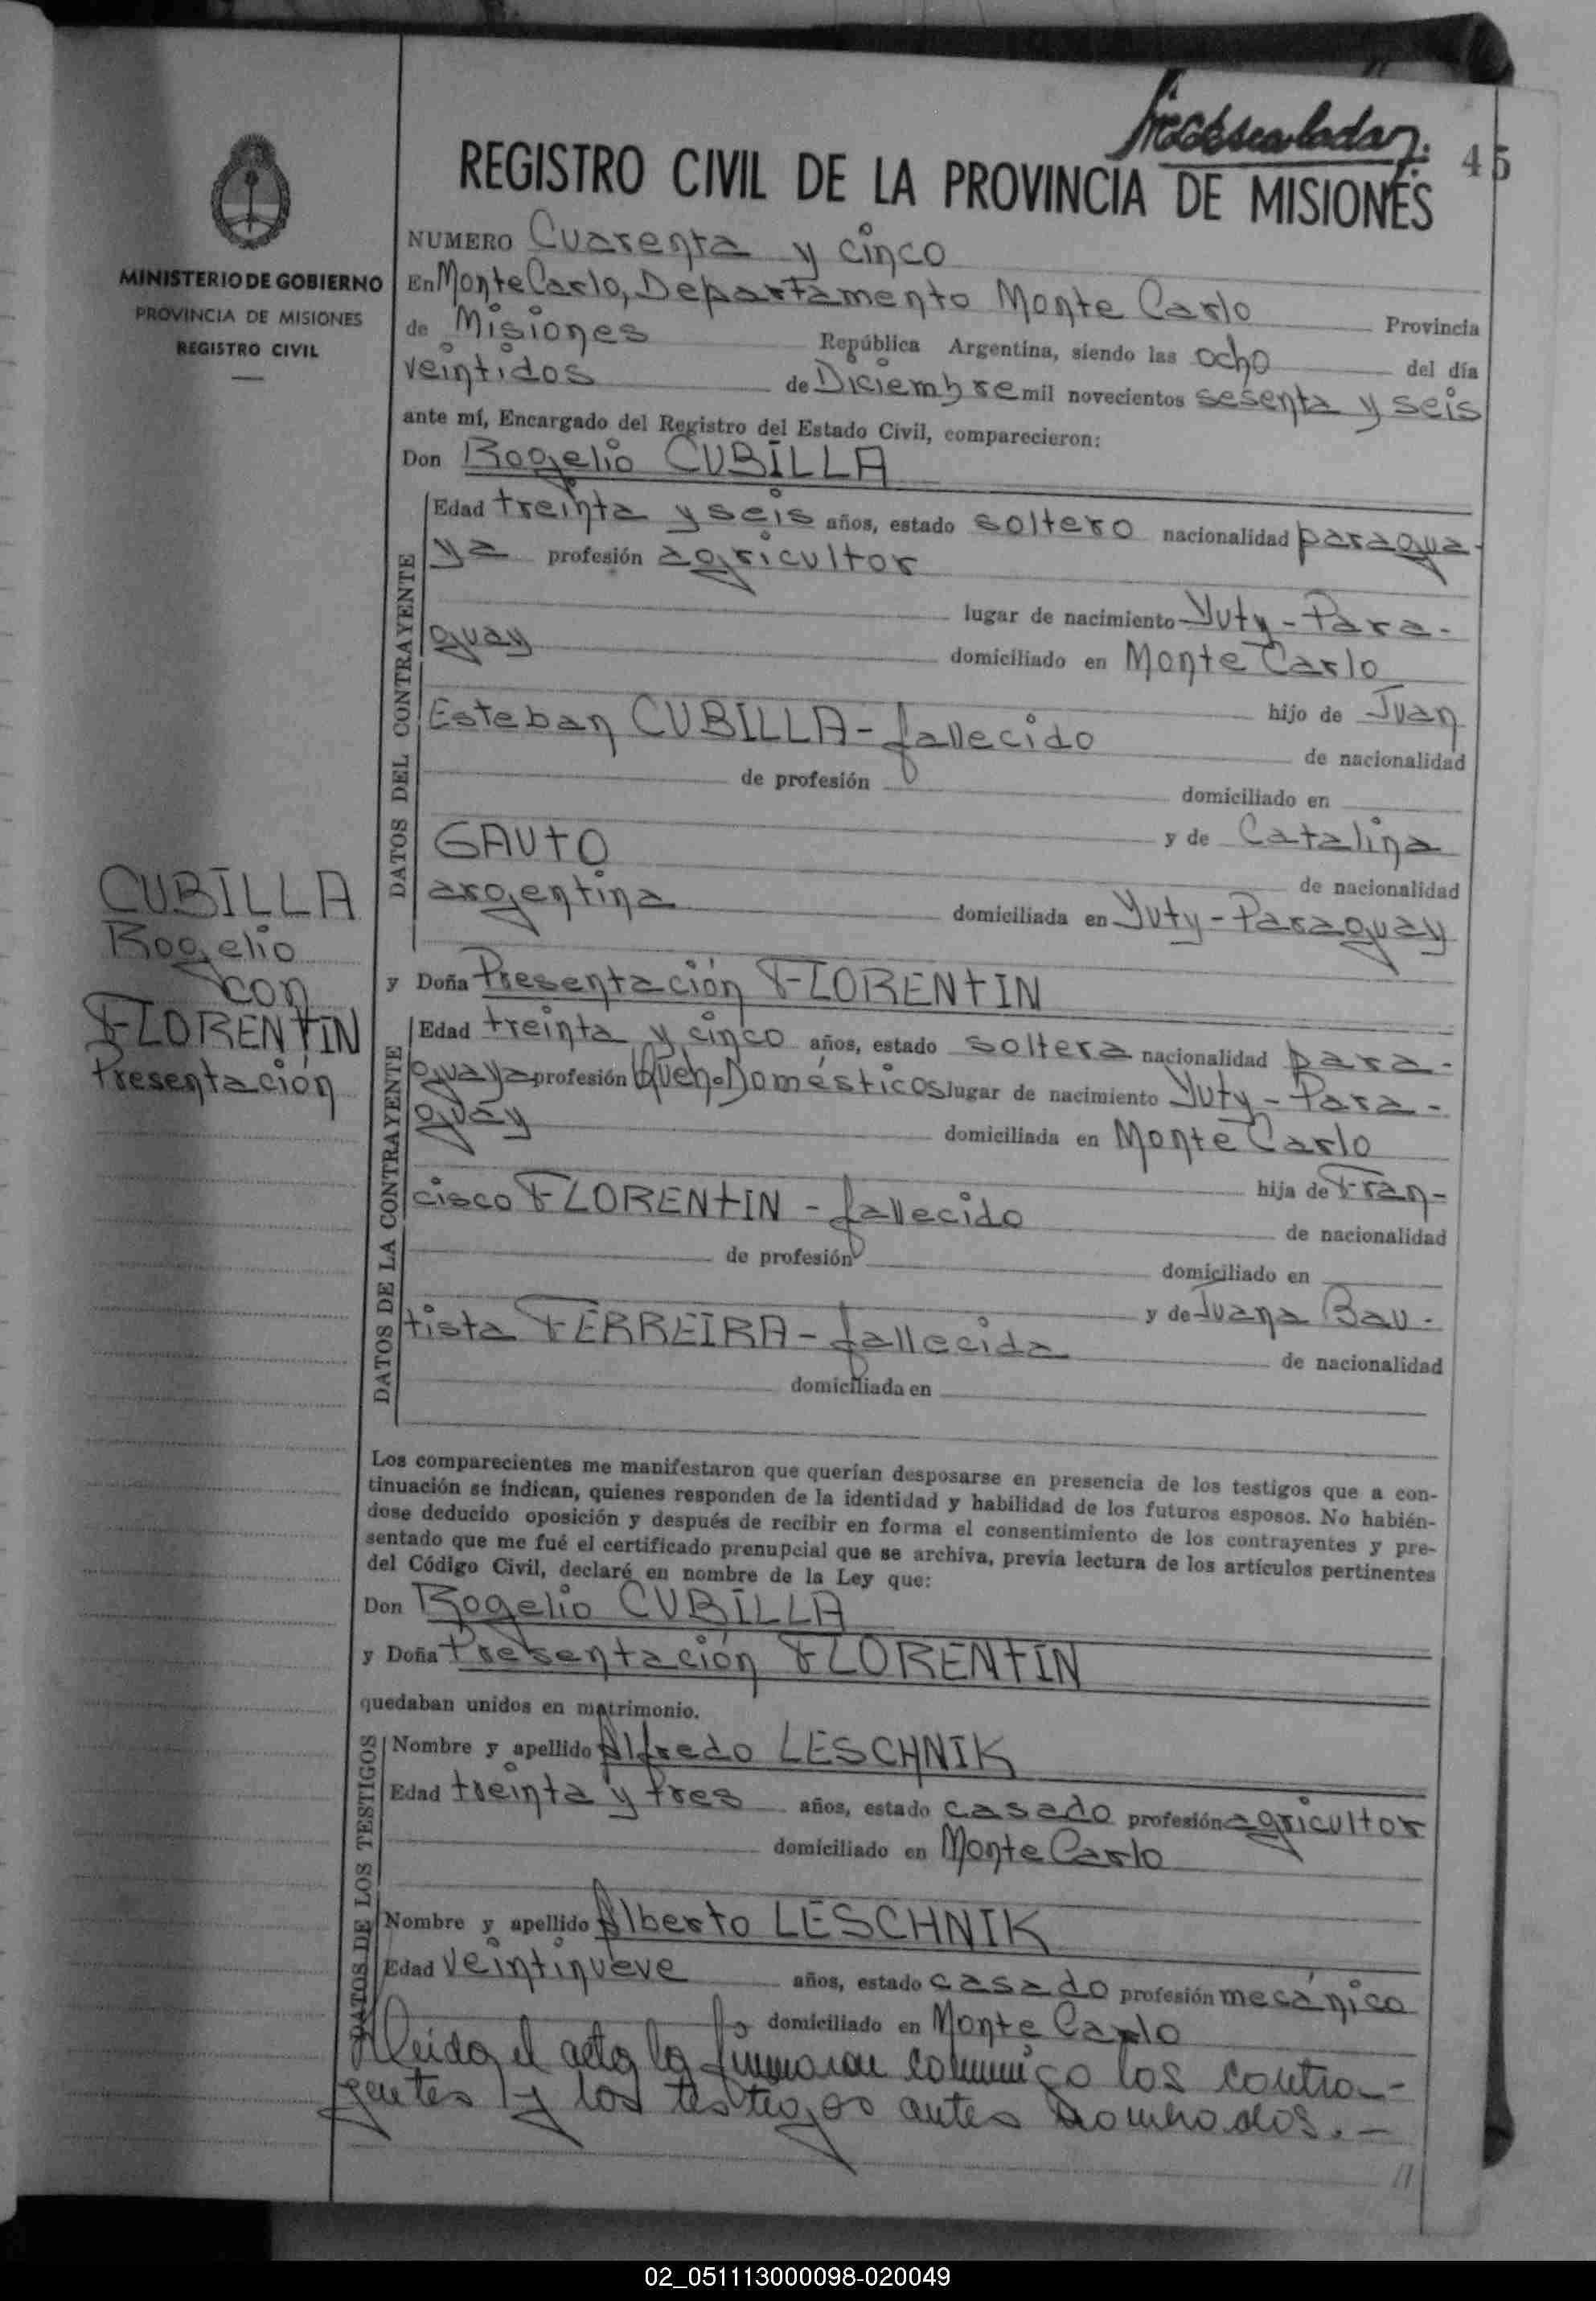 45
REGISTRO CIVIL DE LA PROVINCIA DE MISIONES
MINISTERIO DE GOBIERNO
PROVINCIA DE MISIONES
REGISTRO CIVIL
NUMERO Cuarenta y cinco
En Monte Carlo, Departamento Monte Carlo Provincia
de Misiones República Argentina, siendo las ocho del día
veintidos de Diciembre mil novecientos sesenta y seis
ante mí, Encargado del Registro del Estado Civil, comparecieron:
Don Rogelio CUBILLA
DATOS DEL CONTRAYENTE
Edad treinta y seis años, estado soltero nacionalidad paragua-
ya profesión agricultor
lugar de nacimiento Yuty - Para-
guay domiciliado en Monte Carlo
hijo de Juan
Esteban CUBILLA - fallecido de nacionalidad
de profesión domiciliado en
y de Catalina
GAUTO de nacionalidad
argentina domiciliada en Yuty - Paraguay
CUBILLA
Rogelio
con
FLORENTIN
Presentación
y Doña Presentación FLORENTIN
DATOS DE LA CONTRAYENTE
Edad treinta y cinco años, estado soltera nacionalidad para-
guaya profesión Queh. Domésticos lugar de nacimiento Yuty - Para-
guay domiciliada en Monte Carlo
hija de Fran-
cisco FLORENTIN - fallecido de nacionalidad
de profesión domiciliado en
y de Juana Bau-
tista FERREIRA - fallecida de nacionalidad
domiciliada en
Los comparecientes me manifestaron que querían desposarse en presencia de los testigos que a con-
tinuación se indican, quienes responden de la identidad y habilidad de los futuros esposos. No habién-
dose deducido oposición y después de recibir en forma el consentimiento de los contrayentes y pre-
sentado que me fué el certificado prenupcial que se archiva, previa lectura de los artículos pertinentes
del Código Civil, declaré en nombre de la Ley que:
Don Rogelio CUBILLA
y Doña Presentación FLORENTIN
quedaban unidos en matrimonio.
DATOS DE LOS TESTIGOS
Nombre y apellido Alfredo LESCHNIK
Edad treinta y tres años, estado casado profesión agricultor
domiciliado en Monte Carlo
Nombre y apellido Alberto LESCHNIK
Edad veintinueve años, estado casado profesión mecánico
domiciliado en Monte Carlo
Leida el acta la firmaron conmigo los contra-
yentes y los testigos antes nombrados. -
02_051113000098-020049